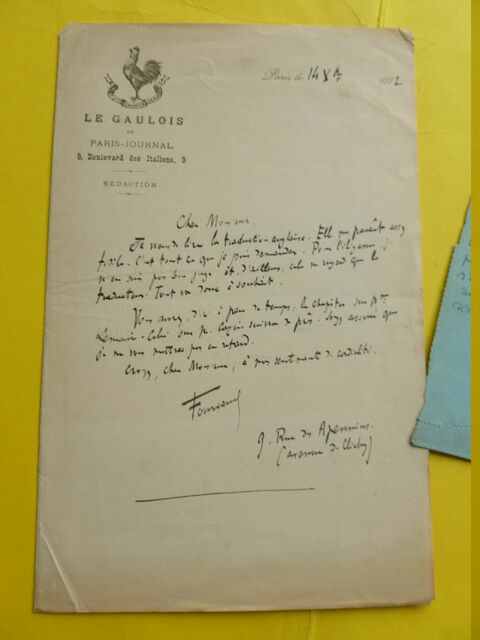 Paris le 14 Xbre 1882
LE GAULOIS
ET
PARIS-JOURNAL
9, Boulevard des Italiens, 9
RÉDACTION
Cher Monsieur,
Je viens de lire la traduction anglaise. Elle me paraît assez
fidèle. C'est tout ce que je puis demander. Pour l'élégance, je
n'en suis pas bon juge et d'ailleurs, cela ne regarde que le
traducteur. Tout va donc à souhait.
Vous aurez, d'ici à peu de temps, le chapitre sur Mme
Lemaire. Celui sur M. suivra de près. Soyez assuré que
je ne vous mettrai pas en retard.
Croyez, cher Monsieur, à mes sentiments de cordialité.
Fourcaud
9. Rue des Apennins.
(avenue de Clichy)